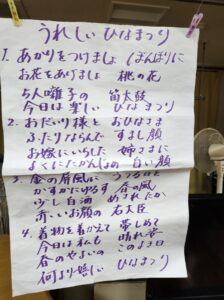 うれしいひなまつり
1. あかりをつけましょ ぼんぼりに
お花をあげましょ 桃の花
5人囃子の 笛太鼓
今日は楽しい ひなまつり
2. おだいり様と おひなさま
ふたりならんで すまし顔
お嫁にいらした 姉さまに
よくにたかんじょの 白い顔
3. 金の屏風に うつる日を
かすかにゆする 春の風
少し白酒 めされたか
赤いお顔の 右大臣
4. 着物を着かえて 帯しめて
今日は私も 晴れ姿
春のやよいの このよき日
何より嬉しい ひなまつり